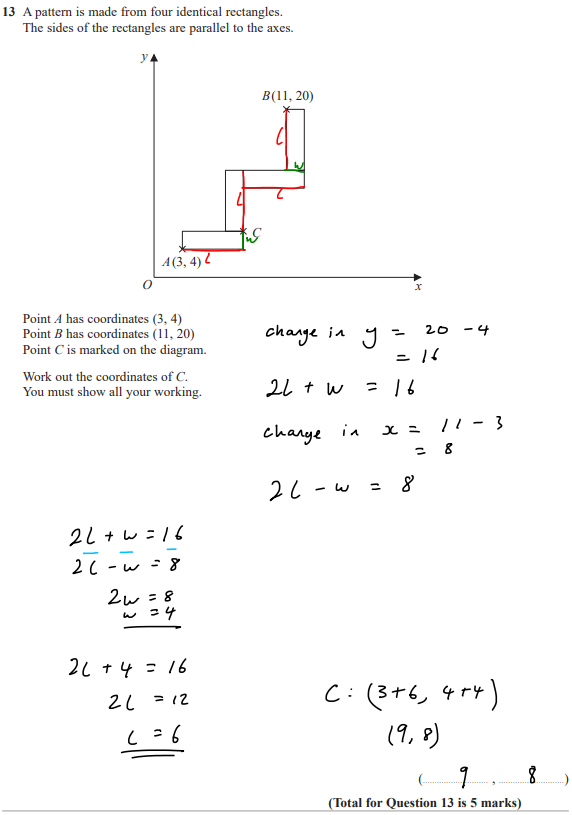 13 A pattern is made from four identical rectangles.
The sides of the rectangles are parallel to the axes.
y
B(11, 20)
L
w
L
L
C
w
A(3, 4) L
O
x
Point A has coordinates (3, 4)
Point B has coordinates (11, 20)
Point C is marked on the diagram.
Work out the coordinates of C.
You must show all your working.
change in y = 20 - 4
= 16
2L + w = 16
change in x = 11 - 3
= 8
2L - w = 8
2L + w = 16
2L - w = 8
2w = 8
w = 4
2L + 4 = 16
2L = 12
L = 6
C: (3+6, 4+4)
(9, 8)
( 9 , 8 )
(Total for Question 13 is 5 marks)